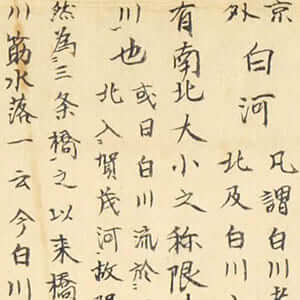 京
外
白河
凡謂白川
北及白川
有南北大小之称限
川也
或曰白川流於
北入賀茂河故
然為三条橋之以来橋
川筋水落一云今白川